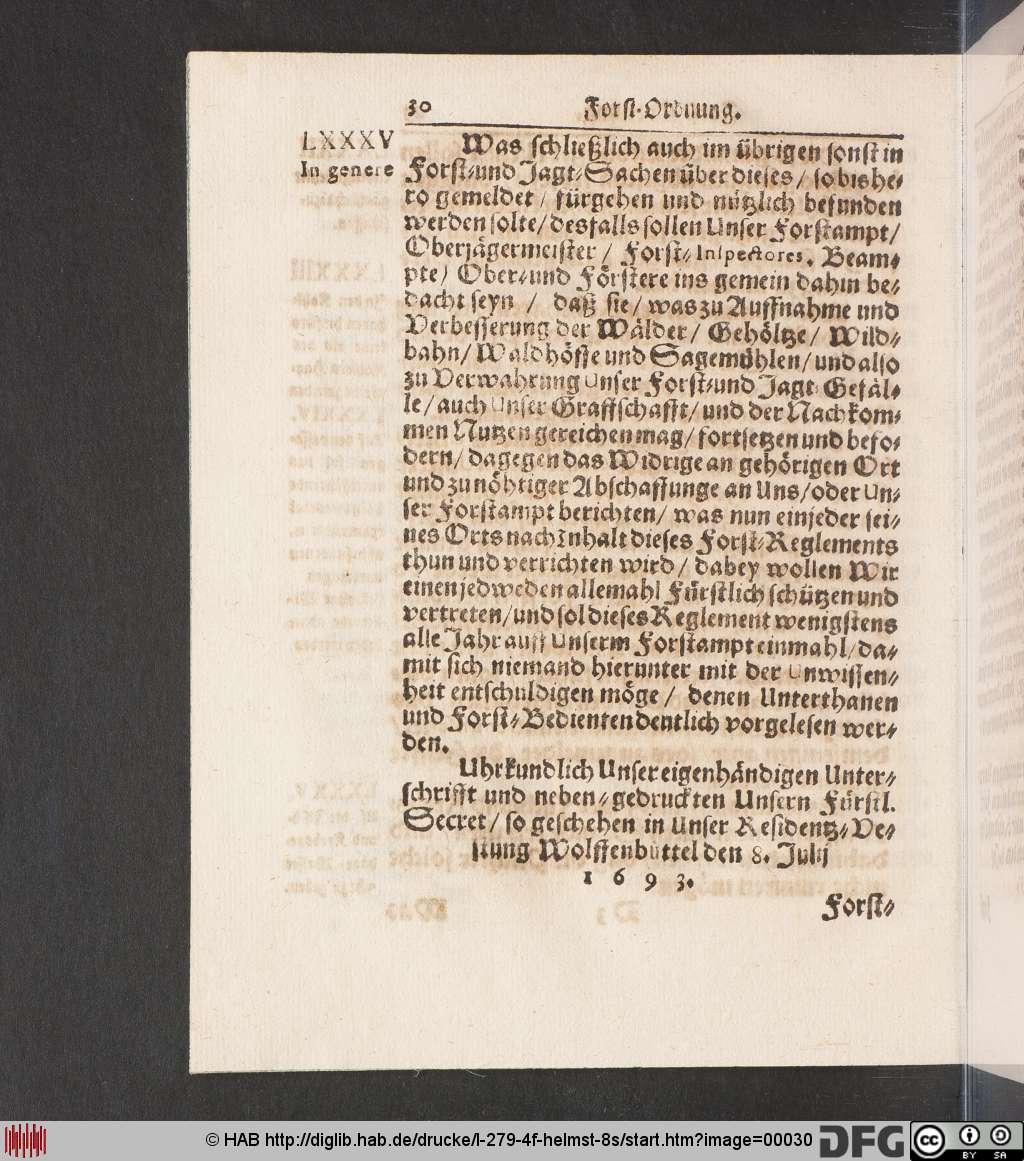 30 Forst-Ordnung.
LXXXV
In genere
Was schließlich auch im übrigen sonst in
Forst-und Jagt-Sachen über dieses / so bishe-
ro gemeldet / fürgehen und nützlich befunden
werden solte / desfalls sollen Unser Forstampt /
Oberjägermeister / Forst-Inspectores, Beam-
pte / Ober-und Förstere ins gemein dahin be-
dacht seyn / daß sie / was zu Auffnahme und
Verbesserung der Wälder / Gehöltze / Wild-
bahn / Waldhöffe und Sagemühlen / und also
zu Verwahrung Unser Forst-und Jagt-Gefäl-
le / auch Unser Graffschafft / und der Nachkom-
men Nutzen gereichen mag / fortsetzen und befo-
dern / dagegen das Widrige an gehörigen Ort
und zu nöhtiger Abschaffunge an Uns / oder Un-
ser Forstampt berichten / was nun einjeder sei-
nes Orts nach Inhalt dieses Forst-Reglements
thun und verrichten wird / dabey wollen Wir
einen jedweden allemahl Fürstlich schützen und
vertreten / und sol dieses Reglement wenigstens
alle Jahr auff Unserm Forstampt einmahl / da-
mit sich niemand hierunter mit der Unwissen-
heit entschuldigen möge / denen Unterthanen
und Forst-Bedienten dentlich vorgelesen wer-
den.
Uhrkundlich Unser eigenhändigen Unter-
schrifft und neben-gedruckten Unsern Fürstl.
Secret / so geschehen in Unser Residentz-Ve-
stung Wolffenbüttel den 8. Julij
1 6 9 3.
Forst-
© HAB http://diglib.hab.de/drucke/l-279-4f-helmst-8s/start.htm?image=00030 DFG cc BY SA